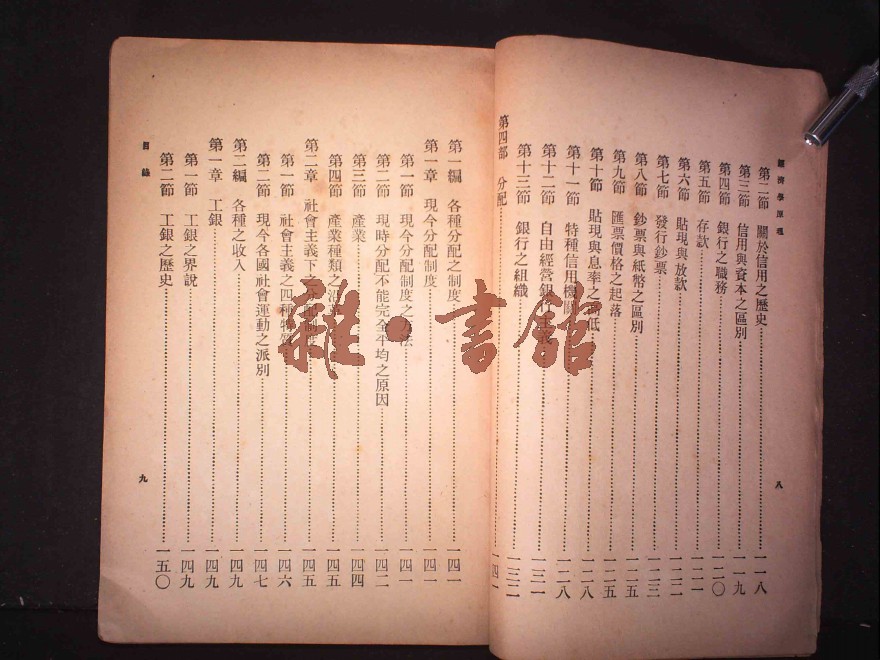 經濟學原理
第二節 關於信用之歷史 一一八
第三節 信用與資本之區別 一一九
第四節 銀行之職務 一二〇
第五節 存款 一二一
第六節 貼現與放款 一二二
第七節 發行鈔票 一二三
第八節 鈔票與紙幣之區別 一二五
第九節 匯票價格之起落 一二五
第十節 貼現與息率之高低 一二八
第十一節 特種信用機關 一二八
第十二節 自由經營銀行 一三一
第十三節 銀行之組織 一三二
第四部 分配 一四一
八
第一編 各種分配之制度 一四一
第一章 現今分配制度 一四一
第一節 現今分配制度之方法 一四一
第二節 現時分配不能完全平均之原因 一四二
第三節 產業 一四四
第四節 產業種類之沿 一四五
第二章 社會主義下之分配制度 一四五
第一節 社會主義之四種特質 一四六
第二節 現今各國社會運動之派別 一四七
第二編 各種之收入 一四九
第一章 工銀 一四九
第一節 工銀之界說 一四九
第二節 工銀之歷史 一五〇
目錄
九
雜·書館